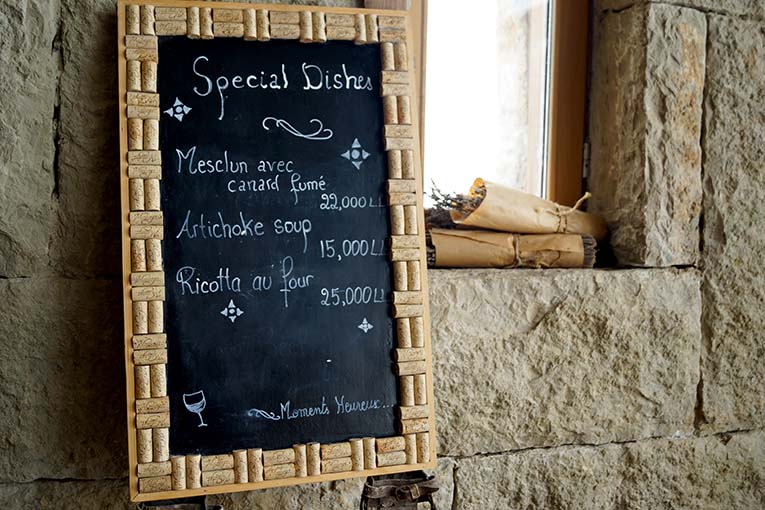 Special Dishes
Mesclun avec
canard fumé
22,000 LL
Artichoke soup
15,000 LL
Ricotta au four
25,000 LL
Moments Heureux...